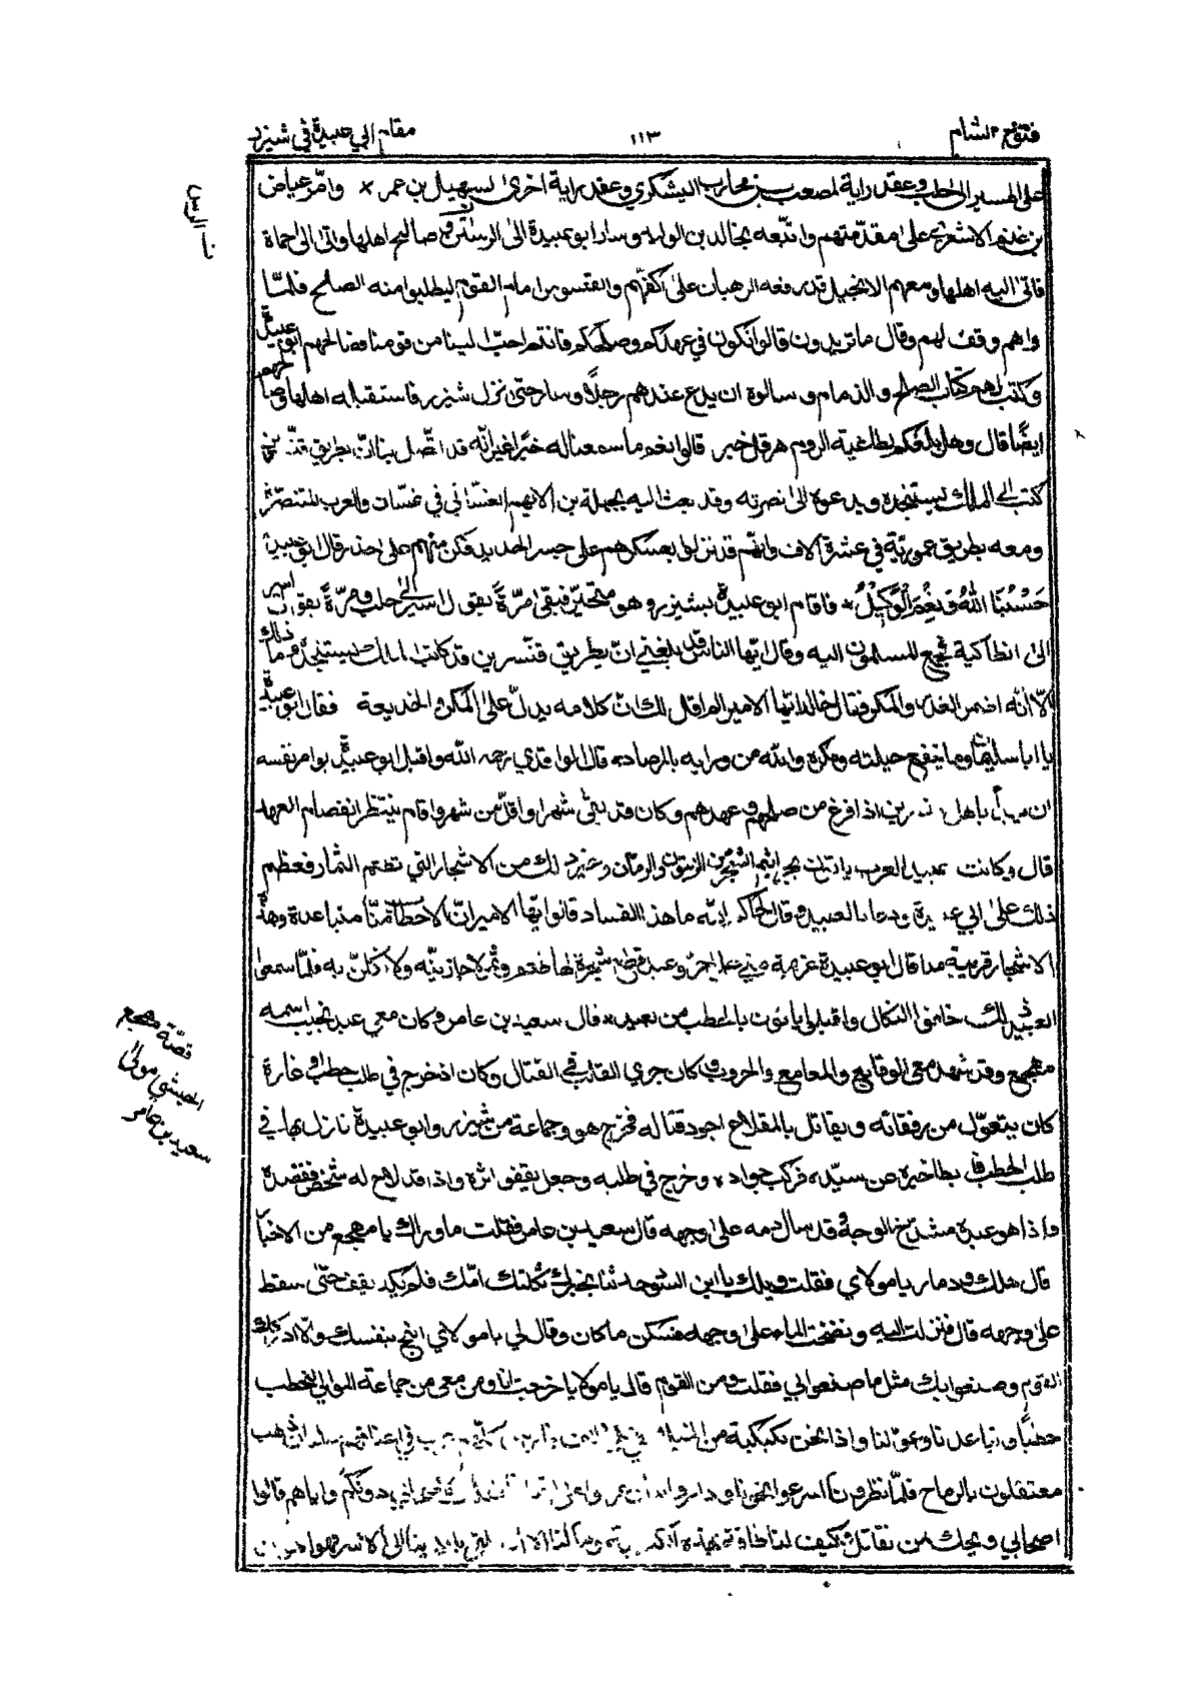 فتوح الشام
١١٣
مقام ابي عبيدة في شيزر
على المسير الى حلب وعقد راية لمصعب بن محارب اليشكري وعقد راية اخرى لسهيل بن عمر × وامّر عياض
بن غنم الاشعري على مقدّمتهم واتبعه بخالد بن الوليد وسار ابو عبيدة الى الرستن فصالح اهلها واتى الى حماة
فاتى اليه اهلها ومعهم الانجيل قد رفعه الرهبان على اكفّهم والقسوس امام القوم ليطلبوا منه الصلح فلمّا
راهم وقف لهم وقال ما تريدون قالوا نكون في عهدكم وصلحكم فانتم احبّ الينا من قومنا فصالحهم ابو عبيدة
وكتب لهم كتاب الصلح والذمام وسالوه ان يدع عندهم رجلًا وسار حتى نزل شيزر فاستقبله اهلها وصالحهم
ايضًا قال وهل بلغكم بطاغية الروم هرقل خبر قالوا نعم ما سمعنا له خبرًا غير انّه قد اتّصل بنا انّ بطريق قنّسرين
كتب الى الملك يستنجده ويدعوه الى نصرته وقد بعث اليه بجبلة بن الايهم الغسّاني في غسّان والعرب المتنصّرة
ومعه بطريق عموريّة في عشرة الاف وانّهم قد نزلوا بعسكرهم على جسر الحديد فكن منهم على حذر قال ابو عبيدة
حَسْبُنَا اللّٰهُ وَنِعْمَ الْوَكِيْلُ * فاقام ابو عبيدة بشيزر وهو متحيّر فبقى مرّةً يقول اسير الى حلب ومرّةً يقول اسير
الى انطاكية فجمع المسلمون اليه وقال ايّها الناس قد بلغني انّ بطريق قنّسرين قد كاتب الملك يستنجده وما ذلك
الّا انّه اضمر الغدر والمكر فقال خالد ايّها الامير الم اقل لك ان كلامه يدلّ على المكر والخديعة فقال ابو عبيدة
يا ابا سليمان وما ينفع حيلته ومكره والله من ورايه بالمرصاد قال الواقدي رحمه الله واقبل ابو عبيدة يوامر نفسه
ان يبدأ باهل قنسرين اذا فرغ من صلحهم وعهدهم وكان قد بقى شهرا واقلّ من شهر واقام ينتظر انفصام العهد
قال وكانت عبيد العرب ياتون بجراثيم الشجر من الزيتون والرمّان وغير ذلك من الاشجار التي تطعم الثمار فعظم
ذلك على ابي عبيدة ودعا العبيد وقال لهم ما هذا الفساد قالوا ايّها الامير انّ الاحطاب منّا متباعدة وهذه
الاشجار قريبة منا قال ابو عبيدة عزمة مني على كل حرّ وعبد قطع شجرة لها طعم وثمر لاجازينّه ولانكلنّ به فلمّا سمعوا
العبيد ذلك خافوا النكال واقبلوا ياتون بالحطب من بعيد * قال سعيد بن عامر وكان معي عبد نجيب اسمه
مهجع وقد شهد معي الوقايع والمعامع والحروب وكان جري القلب في القتال وكان اذ خرج في طلب حطب او غارة
كان يتعوّل من رفقائه ويقاتل بالمقلاع اجود قتاله فخرج هو وجماعة من شيزر وابو عبيدة نازل بها في
طلب الحطب فابطا خبره عن سيّده فركب جواده وخرج في طلبه وجعل يقفو اثره واذا قد لاح له شخص فقصده
واذا هو عبده مشدّخ الوجه وقد سال دمه على وجهه قال سعيد بن عامر فقلت ما وراك يا مهجع من الاخبار
قال هلك ودمار يا مولاي فقلت ويلك يا ابن السّوداء حدثنا بخبرك ثكلتك امّك فلم يكد يقف حتّى سقط
على وجهه قال فنزلت اليه ونضحت الماء على وجهه فسكن ما كان وقال لي يا مولاي انج بنفسك والّا ادركك
القوم وصنعوا بك مثل ما صنعوا بي فقلت ومن القوم قال يا مولاي خرجت انا ومن معي من جماعة الموالي نحتطب
حطبًا وتباعدنا وعوّلنا واذا نحن بكبكبة من الخيل
معتقلون بالرماح فلمّا نظرونا اسرعوا نحونا وداروا دونكم واياهم قالوا
اصحابي ويحك من نقاتل وكيف لنا طاقة
نا الرستن
قصّة مهجع
الحبشي مولى
سعيد بن عامر